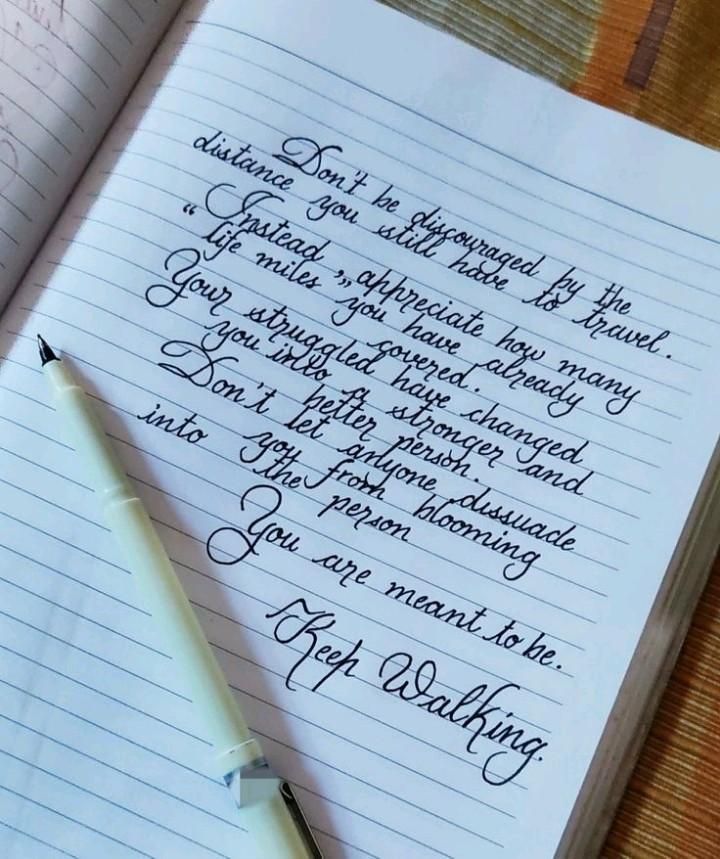 Don't be discouraged by the
distance you still have to travel.
Instead, appreciate how many
"life miles" you have already
covered.
Your struggled have changed
you into a stronger and
better person.
Don't let anyone dissuade
you from blooming
into the person
You are meant to be.
Keep Walking.